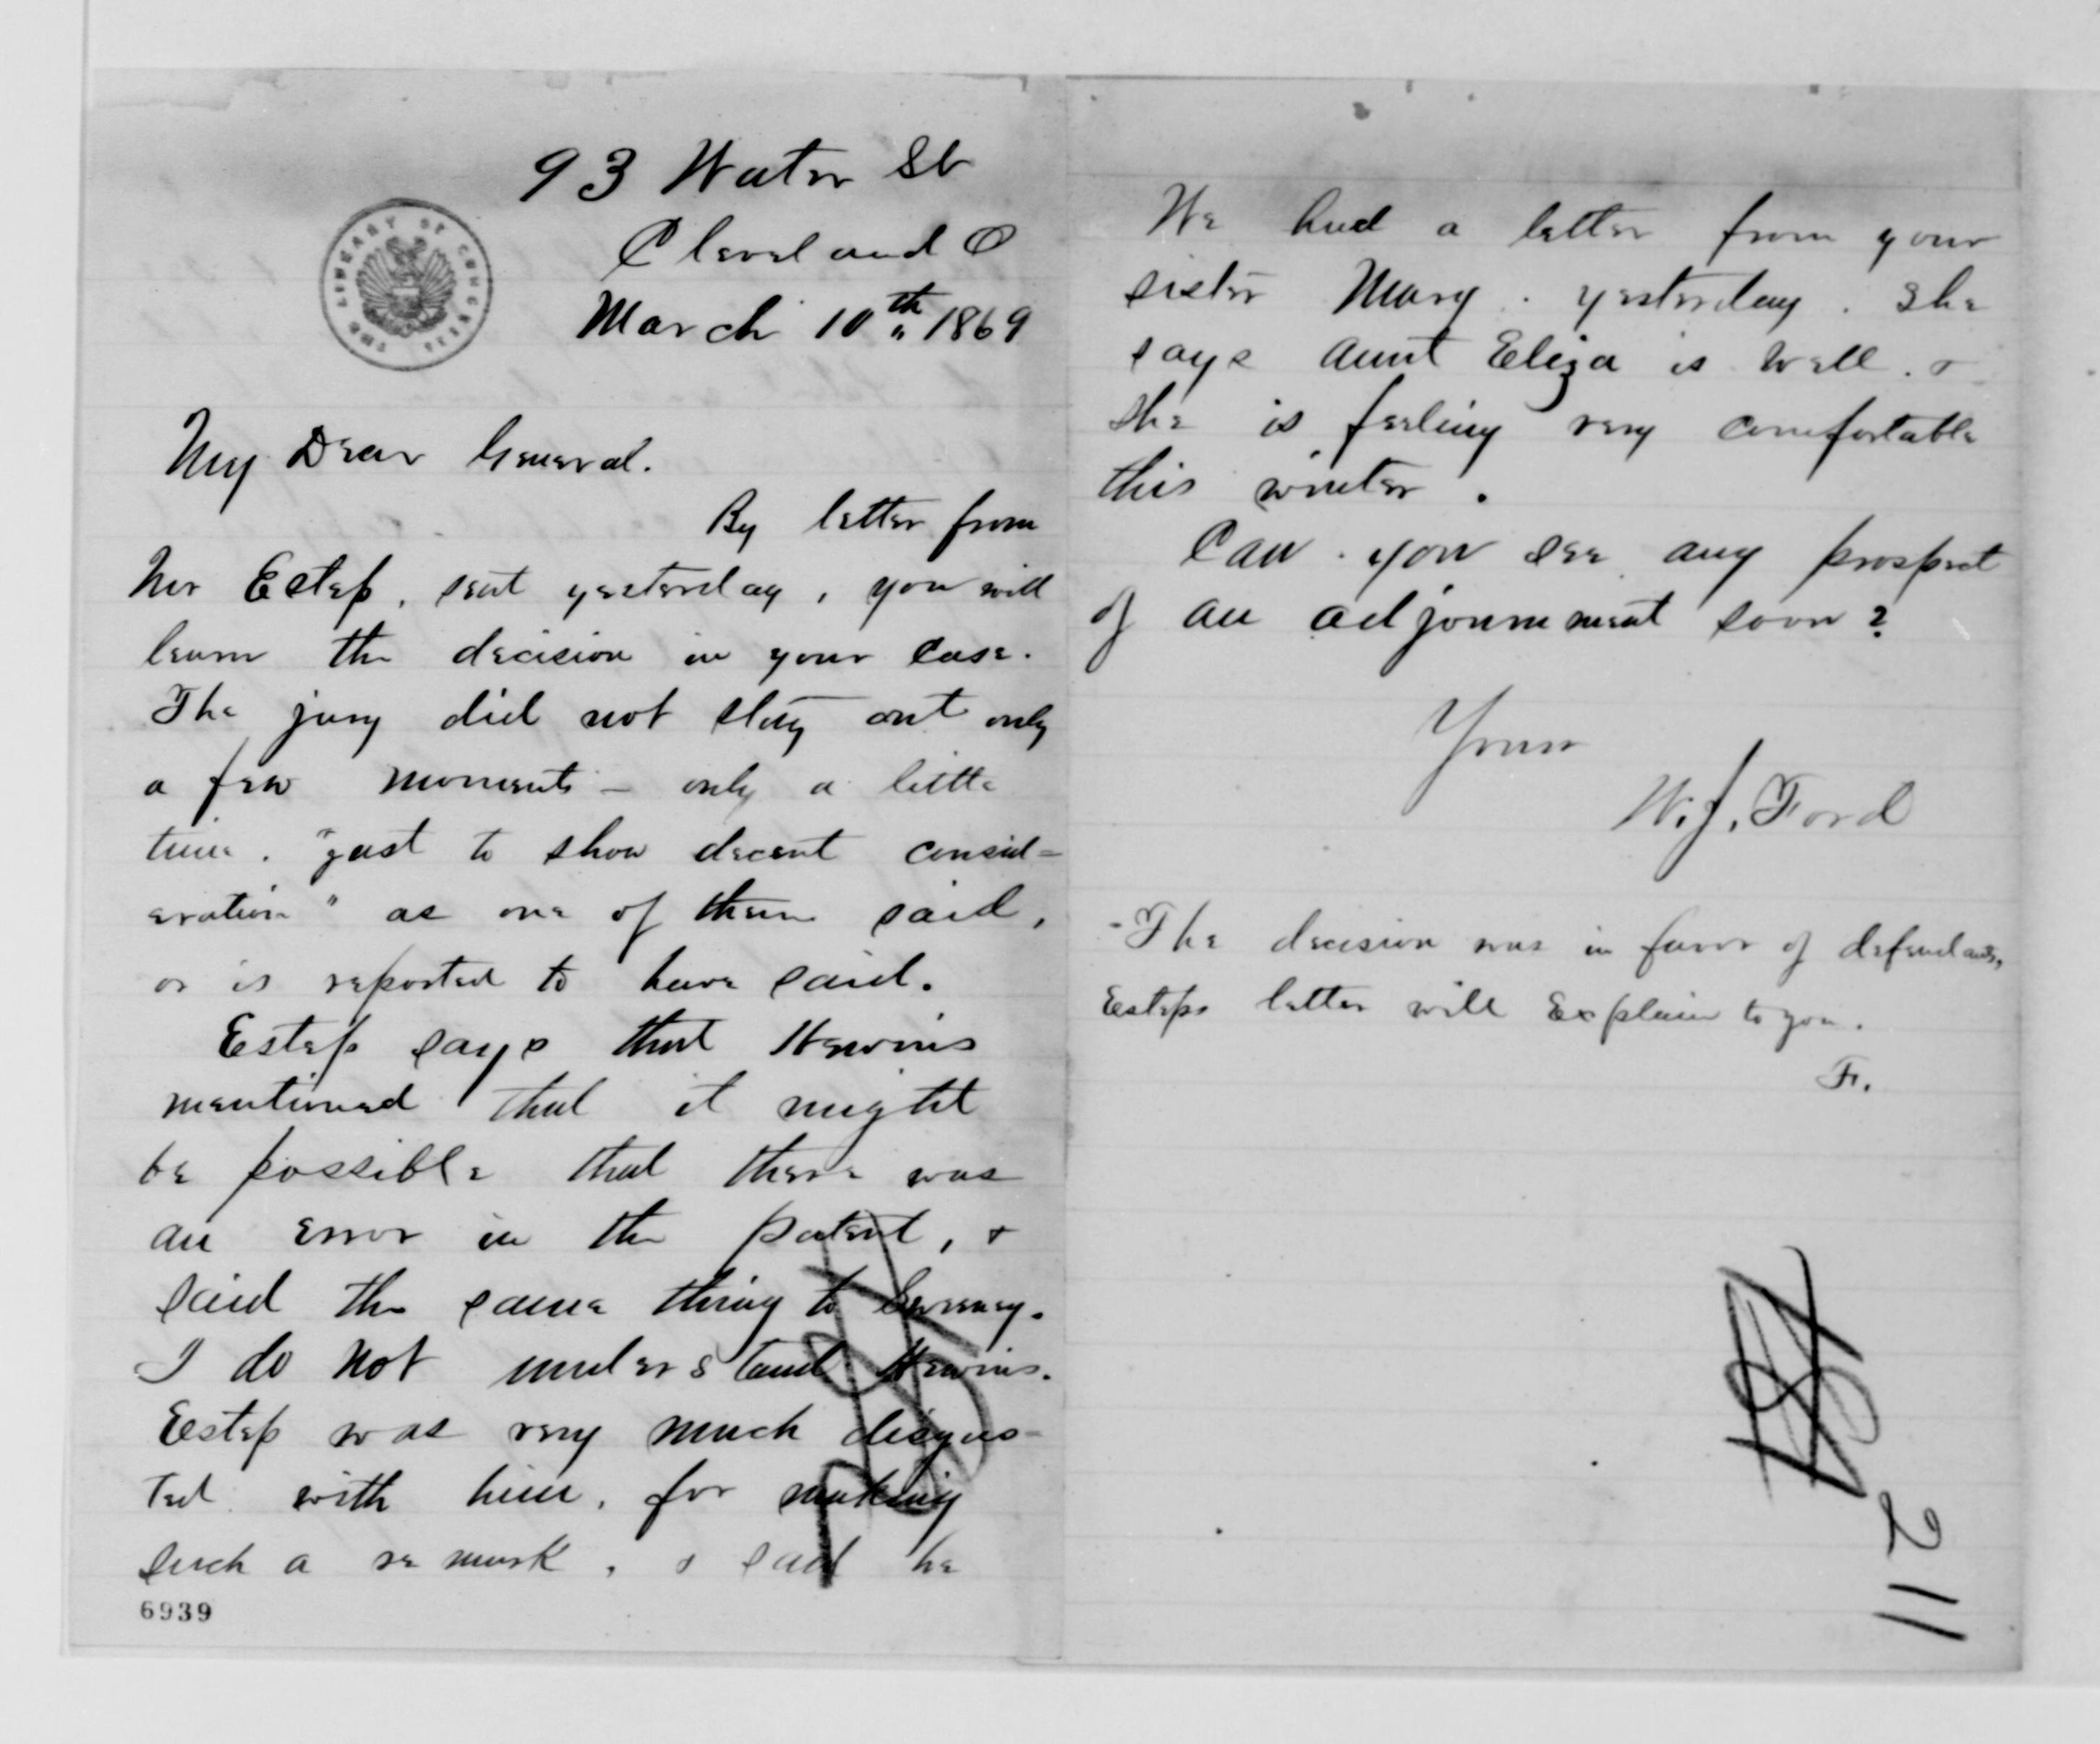 93 Water St
Cleveland O
March 10th 1869
THE LIBRARY OF CONGRESS
My Dear General.
By letter from
Mr Estep, sent yesterday, you will
learn the decision in your case.
The jury did not stay out only
a few moments – only a little
time. "just to show decent consid=
eration" as one of them said,
or is reported to have said.
Estep says that Hewins
mentioned that it might
be possible that there was
an error in the patent, &
said the same thing to
I do not understand Hewins.
Estep was very much disgus-
ted with him, for making
such a remark, & said he
6939
We had a letter from your
sister Mary. yesterday. She
says Aunt Eliza is well. &
she is feeling very comfortable
this winter.
Can you see any prospect
of an adjournment soon?
Yours
W. J. Ford
-The decision was in favor of defendants,
Esteps letter will Explain to you.
F.
2 11